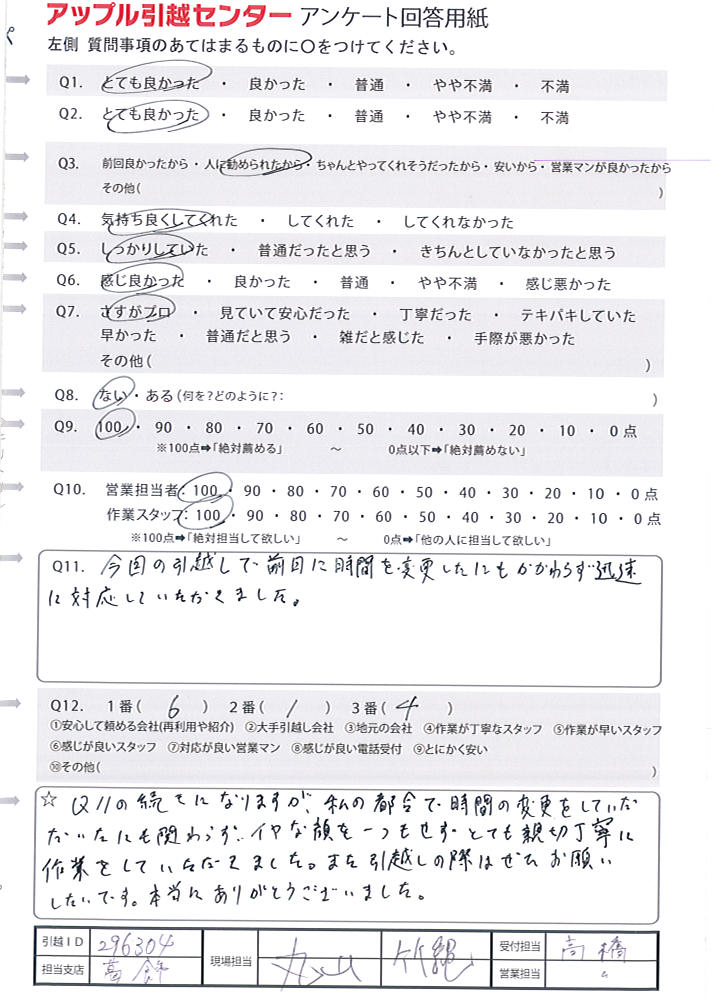 アップル引越センター アンケート回答用紙
左側 質問事項のあてはまるものに○をつけてください。
Q1. とても良かった ・ 良かった ・ 普通 ・ やや不満 ・ 不満
Q2. とても良かった ・ 良かった ・ 普通 ・ やや不満 ・ 不満
Q3. 前回良かったから・人に勧められたから・ちゃんとやってくれそうだったから・安いから・営業マンが良かったから
その他( )
Q4. 気持ち良くしてくれた ・ してくれた ・ してくれなかった
Q5. しっかりしていた ・ 普通だったと思う ・ きちんとしていなかったと思う
Q6. 感じ良かった ・ 良かった ・ 普通 ・ やや不満 ・ 感じ悪かった
Q7. さすがプロ ・ 見ていて安心だった ・ 丁寧だった ・ テキパキしていた
早かった ・ 普通だと思う ・ 雑だと感じた ・ 手際が悪かった
その他( )
Q8. ない・ある(何を?どのように?: )
Q9. 100 ・ 90 ・ 80 ・ 70 ・ 60 ・ 50 ・ 40 ・ 30 ・ 20 ・ 10 ・ 0 点
※100点➡「絶対薦める」 ～ 0点以下➡「絶対薦めない」
Q10. 営業担当者: 100 ・ 90 ・ 80 ・ 70 ・ 60 ・ 50 ・ 40 ・ 30 ・ 20 ・ 10 ・ 0 点
作業スタッフ: 100 ・ 90 ・ 80 ・ 70 ・ 60 ・ 50 ・ 40 ・ 30 ・ 20 ・ 10 ・ 0 点
※100点➡「絶対担当して欲しい」 ～ 0点➡「他の人に担当して欲しい」
Q11. 今回の引越しで前日に時間を変更したにもかかわらず迅速
に対応していただきました。
Q12. 1番( 6 ) 2番( 1 ) 3番( 4 )
①安心して頼める会社(再利用や紹介) ②大手引越し会社 ③地元の会社 ④作業が丁寧なスタッフ ⑤作業が早いスタッフ
⑥感じが良いスタッフ ⑦対応が良い営業マン ⑧感じが良い電話受付 ⑨とにかく安い
⑩その他( )
☆ Q11の続きになりますが、私の都合で時間の変更をしていた
だいたにも関わらず、イヤな顔を一つもせずとても親切丁寧に
作業をしていただきました。また引越しの際はぜひお願い
したいです。本当にありがとうございました。
引越ID 296304 現場担当 丸山 竹縄 受付担当 高橋
担当支店 葛飾 営業担当 〃